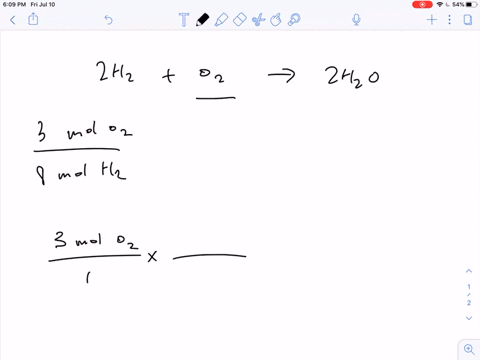 6:09 PM Fri Jul 10 54%
2H₂ + O₂ → 2H₂O
3 mol O₂
8 mol H₂
3 mol O₂ ×
1
1 / 2